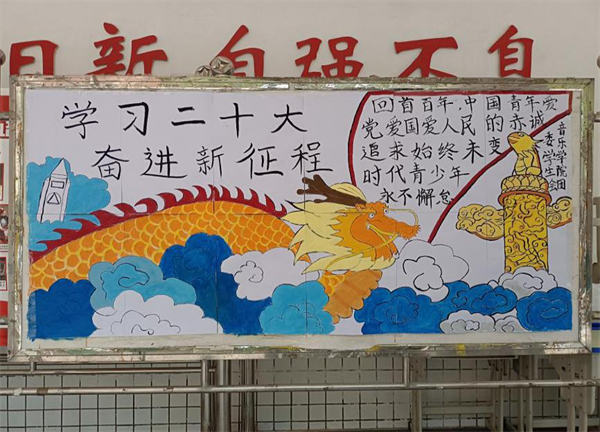 日新 自强不息
学习二十大
奋进新征程
回首百年,中国青年爱
党爱国爱人民的赤诚
追求始终未变
时代青少年
永不懈怠
音乐学院团
委学生会